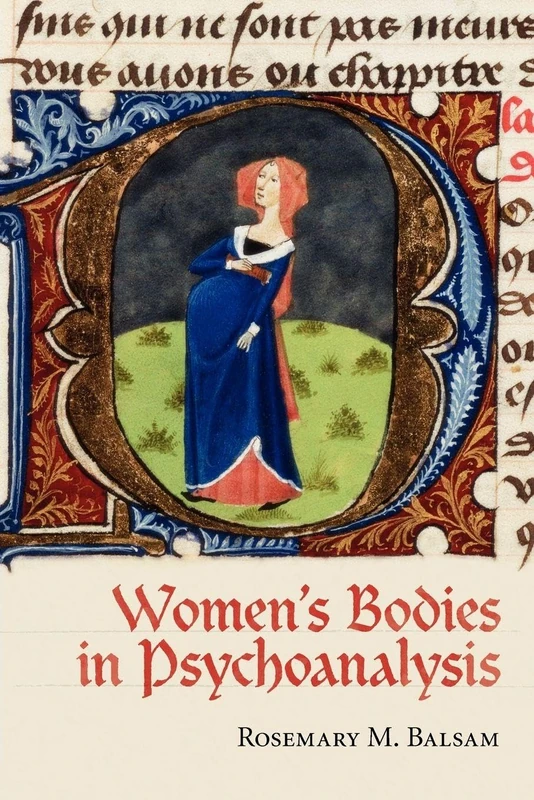 qui ne sont pas meurs
nous auons ou chappitre
la
Women's Bodies
in Psychoanalysis
Rosemary M. Balsam